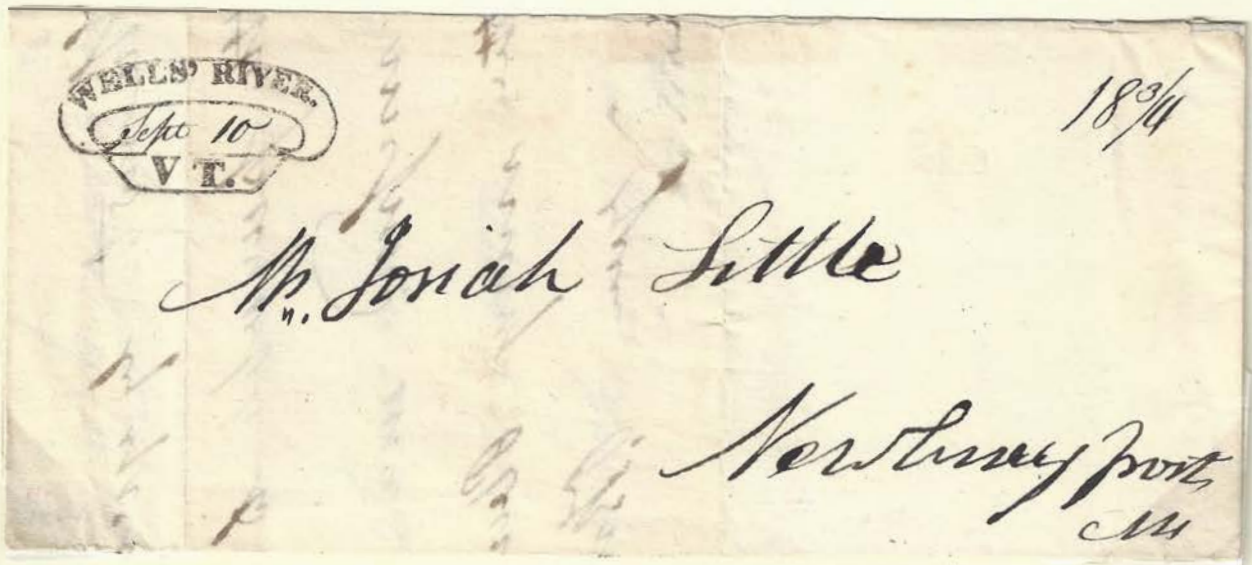 WELLS' RIVER.
Sept 10
VT.
18 3/4
Mr. Josiah Little
Newburyport,
Ms